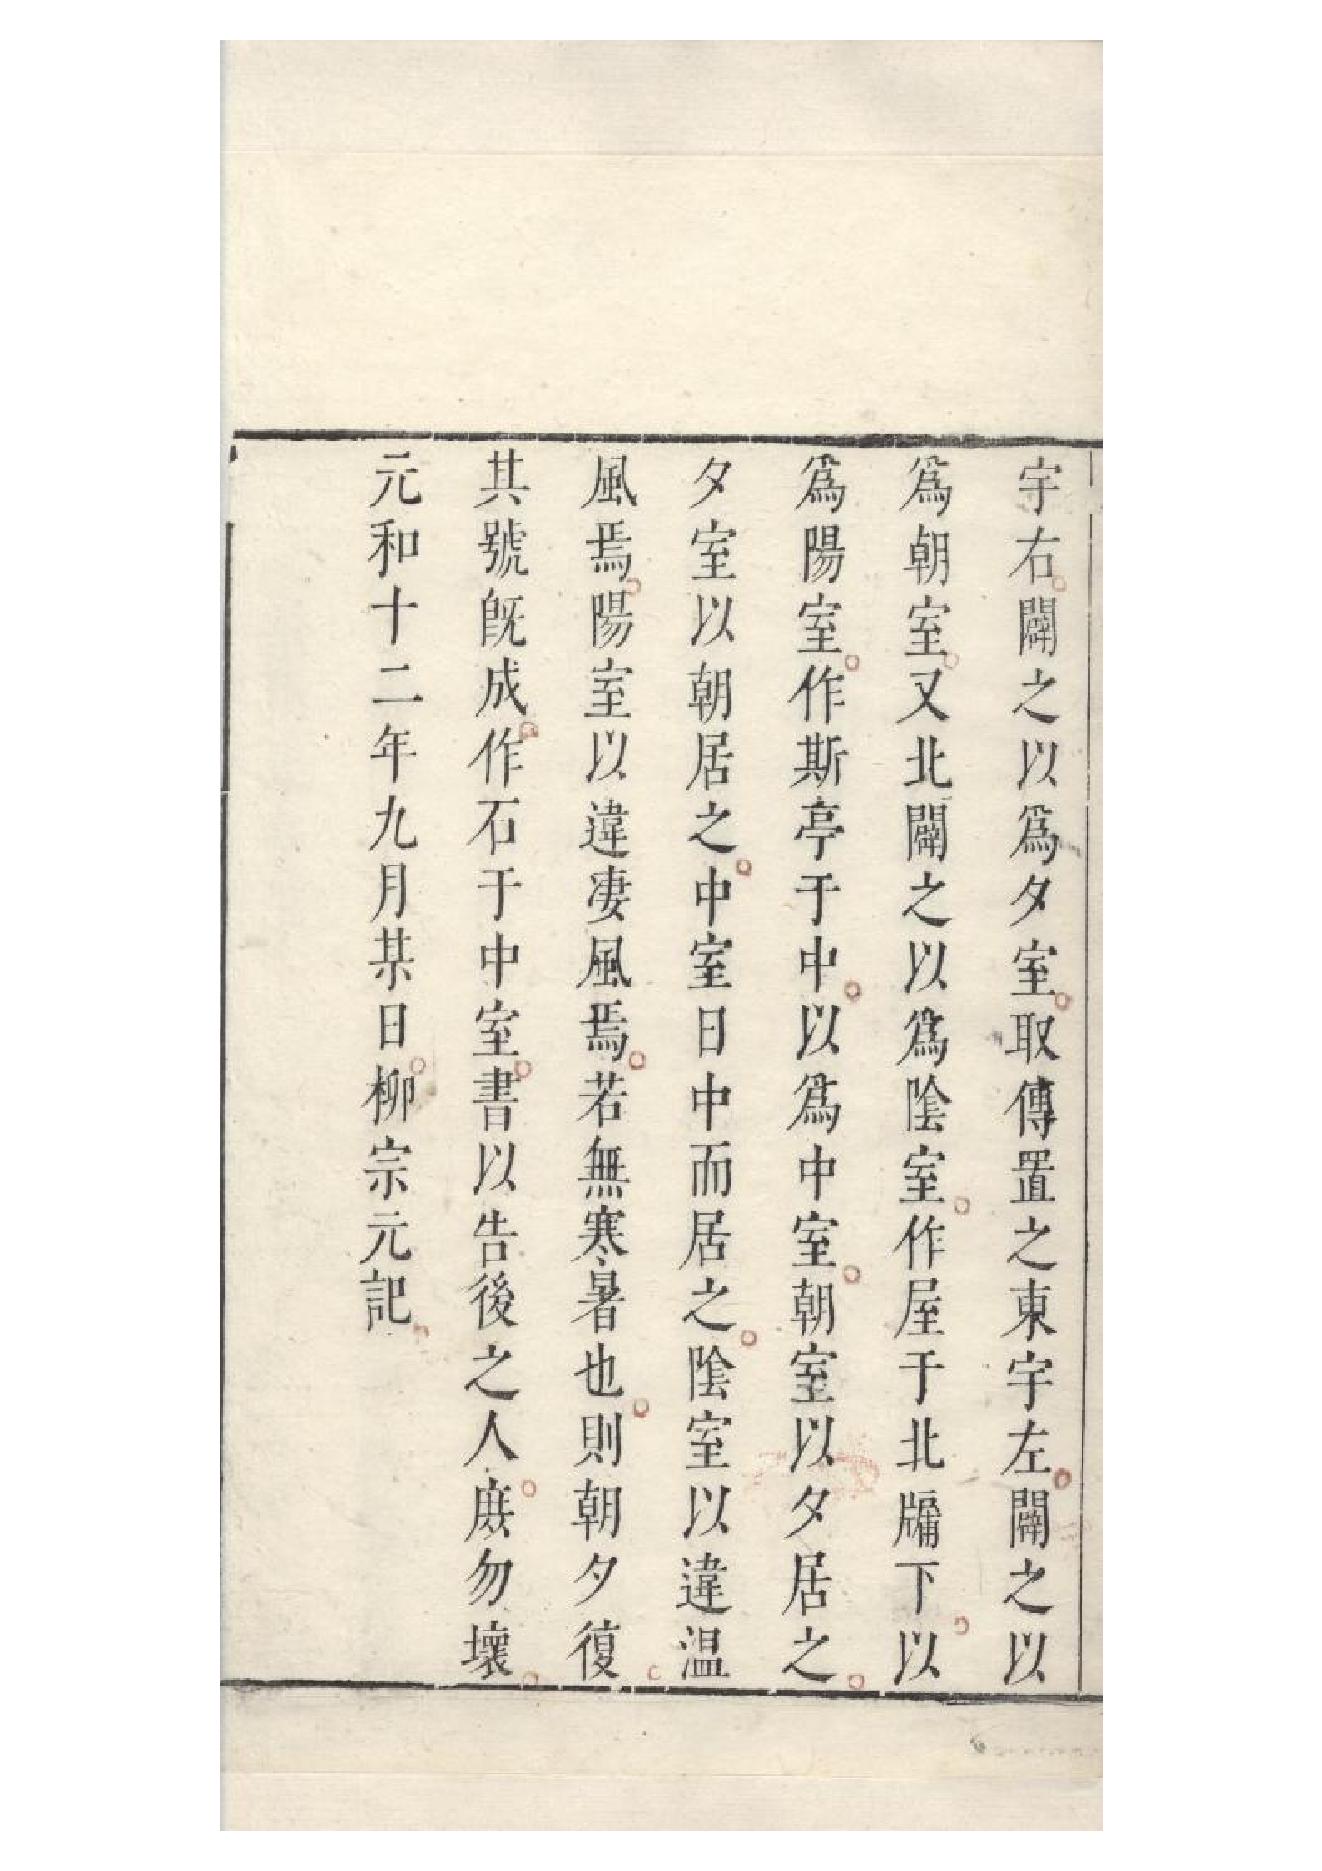 宇右闢之以爲夕室取傳置之東宇左闢之以
爲朝室又北闢之以爲陰室作屋于北牖下以
爲陽室作斯亭于中以爲中室朝室以夕居之
夕室以朝居之中室日中而居之陰室以違温
風焉陽室以違凄風焉若無寒暑也則朝夕復
其號旣成作石于中室書以告後之人庶勿壞
元和十二年九月某日柳宗元記